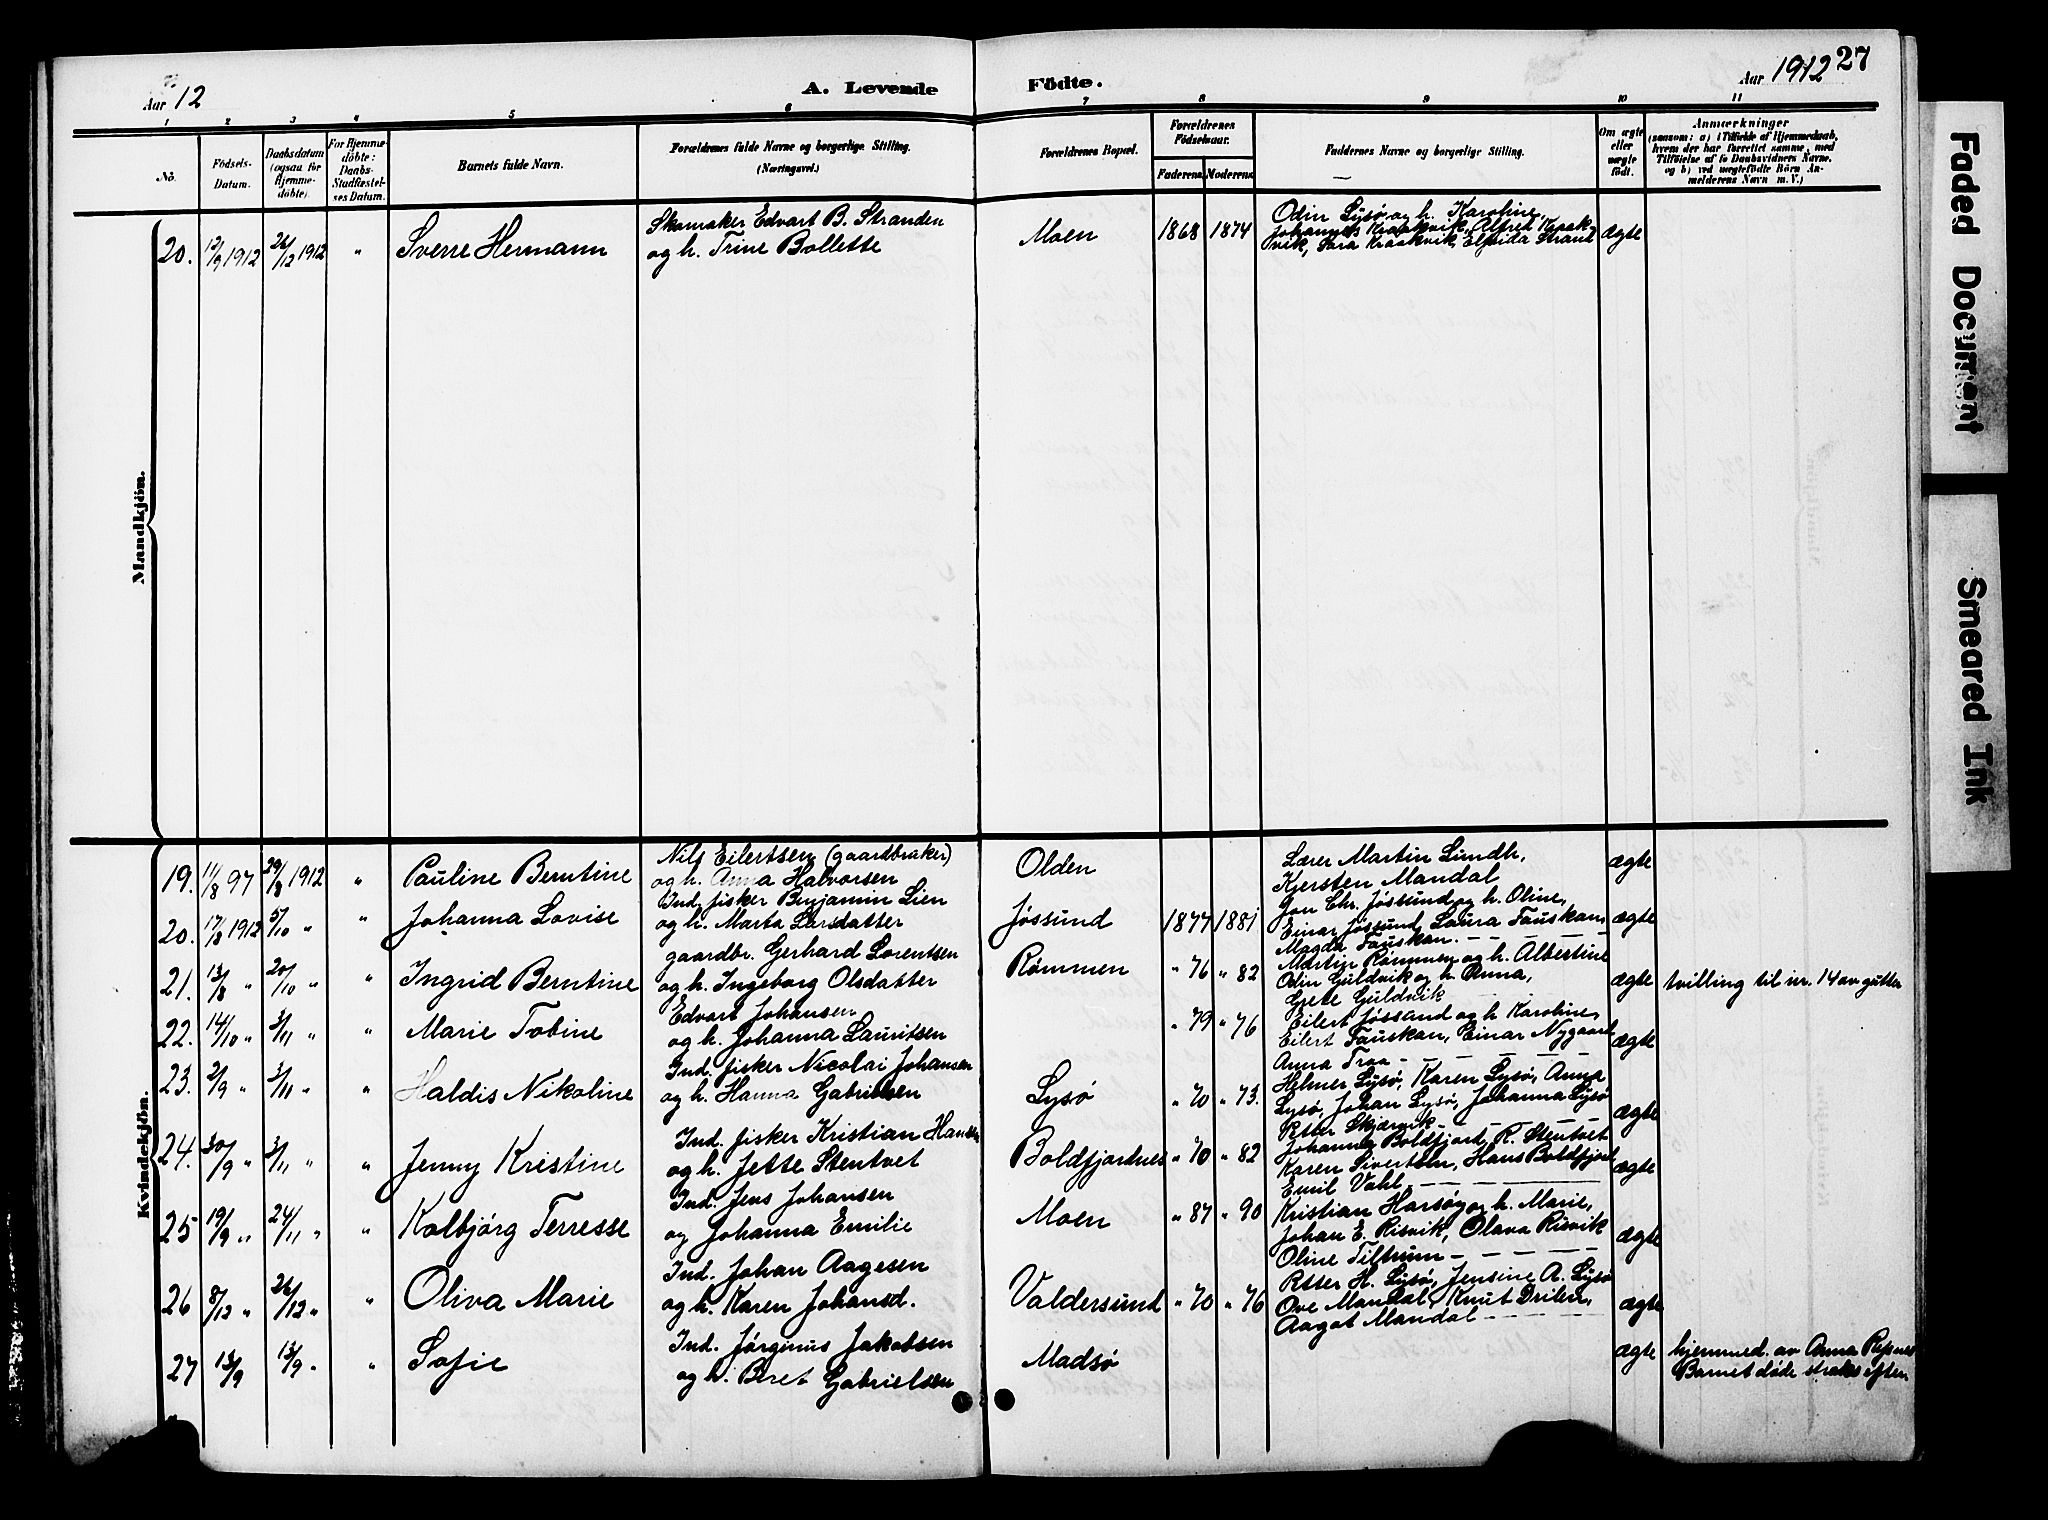 Aar 12
A. Levende Födte.
Aar 1912 27
1 2 3 4 5 6 7 8 9 10 11
No.
Födsels-Datum.
Daabsdatum (ogsaa for Hjemme-döbte).
For Hjemme-döbte: Daabs-Stadfæstel-ses Datum.
Barnets fulde Navn.
Forældrenes fulde Navne og borgerlige Stilling. (Næringsvei.)
Forældrenes Bopæl.
Forældrenes Födselsaar.
Faderens. Moderens.
Faddernes Navne og borgerlige Stilling.
Om ægte eller uægte födt.
Anmærkninger
(saasom: a) i Tilfælde af Hjemmedaab, hvem der har forrettet samme, med Tilföielse af to Daabsvidners Navne, og b) ved uægtefödte Börn An-melderens Navn m. V.)
Mandkjön.
20. 12/9 1912 26/12 1912 " Sverre Hermann
Skomaker Edvart B. Stranden
og h. Trine Bollette
Moen 1868 1874
Odin Lysø og h. Karoline,
Johannes Kraakvik, Alfred Kraak-
vik, Sara Kraakvik Elfrida Strand
ægte
Kvindekjön.
19. 11/8 97 29/8 1912 " Pauline Berntine
Nils Eilertsen (gaardbruker)
og h. Anna Halvorsen
Olden
Lærer Martin Lundh,
Kjersten Mandal
ægte
20. 17/8 1912 5/10 " " Johanna Lovise
Ind. fisker Benjamin Lien
og h. Marta Larsdatter
Jøssund 1877 1881
Jon Chr. Jøssund og h. Oline,
Einar Jøssund, Laura Fauskan,
Magda Fauskan.
ægte
21. 13/8 " 20/10 " " Ingrid Berntine
gaardbr. Gerhard Lorentsen
og h. Ingeborg Olsdatter
Rømmen " 76 " 82
Martin Rømmen og h. Albertine
Odin Guldvik og h. Anna,
Grete Guldvik
ægte tvilling til nr. 14 av gutter
22. 14/10 " 3/11 " " Marie Tobine
Edvart Johansen
og h. Johanna Lauritsen
" 79 " 76
Eilert Jøssund og h. Karoline,
Eilert Fauskan, Einar Nygaard
Anna Traa
ægte
23. 2/9 " 3/11 " " Haldis Nikoline
Ind. fisker Nicolai Johansen
og h. Hanna Gabrielsen
Lysø " 70 " 73.
Helmer Lysø, Karen Lysø, Anna
Lysø, Johan Lysø, Johanna Lysø
Petter Skjærvik
ægte
24. 30/9 " 3/11 " " Jenny Kristine
Ind. fisker Kristian Hansen
og h. Jette Stentvet
Boldfjordnes " 70 " 82
Johanna Boldfjord, R. Stentvet
Karen Sivertsen, Hans Boldfjord
Emil Vahl
ægte
25 19/9 " 24/11 " " Kolbjørg Terresse
Ind. Jens Johansen
og Johanna Emilie
Moen " 87 " 90
Kristian Harsøy og h. Marie,
Johan E. Risvik, Olava Risvik
Oline Tiltrum
ægte
26 8/12 " 26/12 " " Oliva Marie
Ind. Johan Aagesen
og h. Karen Johansd.
Valdersund " 70 " 76
Petter H. Lysø, Jensine A. Lysø
Ove Mandal, Knut Driten,
Aagot Mandal
ægte
27 13/9 13/9 " " Sofie
Ind. Jørginus Jakobsen
og h. Beret Gabrielsen
Madsø
ægte hjemmed. av Anna Repnes
Barnet døde straks efter
Faded Document
Smeared Ink